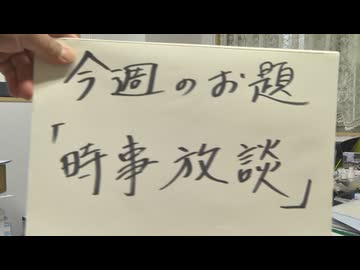 今週のお題
「時事放談」